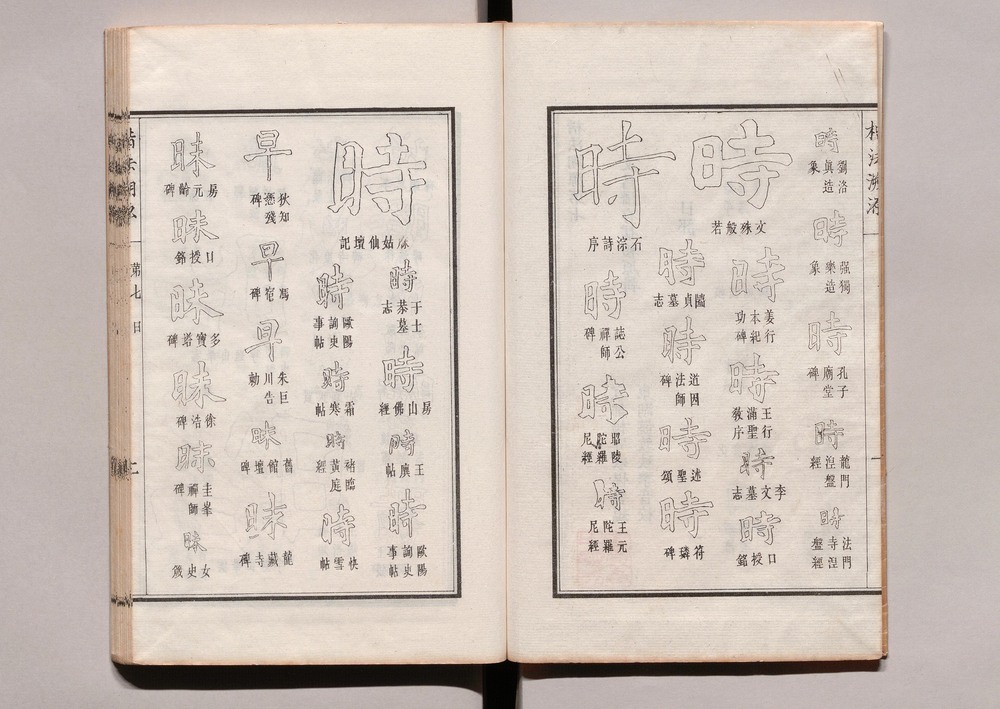 楷法溯源
時 劉洛眞造象
時 强獨樂造象
時 孔子廟堂碑
時 龍門涅盤經
時 法門寺涅盤經
時 文殊般若
時 姜行本紀功碑
時 王行滿聖教序
時 李文墓志
時 口授銘
時 貞墓志
時 道因法師碑
時 述聖頌
時 符璘碑
時 石淙詩序
時 誌公禪師碑
時 昭陵陀羅尼經
時 王元陀羅尼經
時 麻姑仙壇記
時 于士恭墓志
時 房山佛經
時 王廙帖
時 歐陽詢史事帖
時 歐陽詢史事帖
時 霜寒帖
時 褚臨黃庭經
時 快雪帖
早 狄知愻殘碑
早 馮宿碑
早 朱巨川告勅
昧 舊館壇碑
昧 龍藏寺碑
昧 房元齡碑
昧 口授銘
昧 多寶塔碑
昧 徐浩碑
昧 圭峯禪師碑
昧 女史箴
第七 日 二